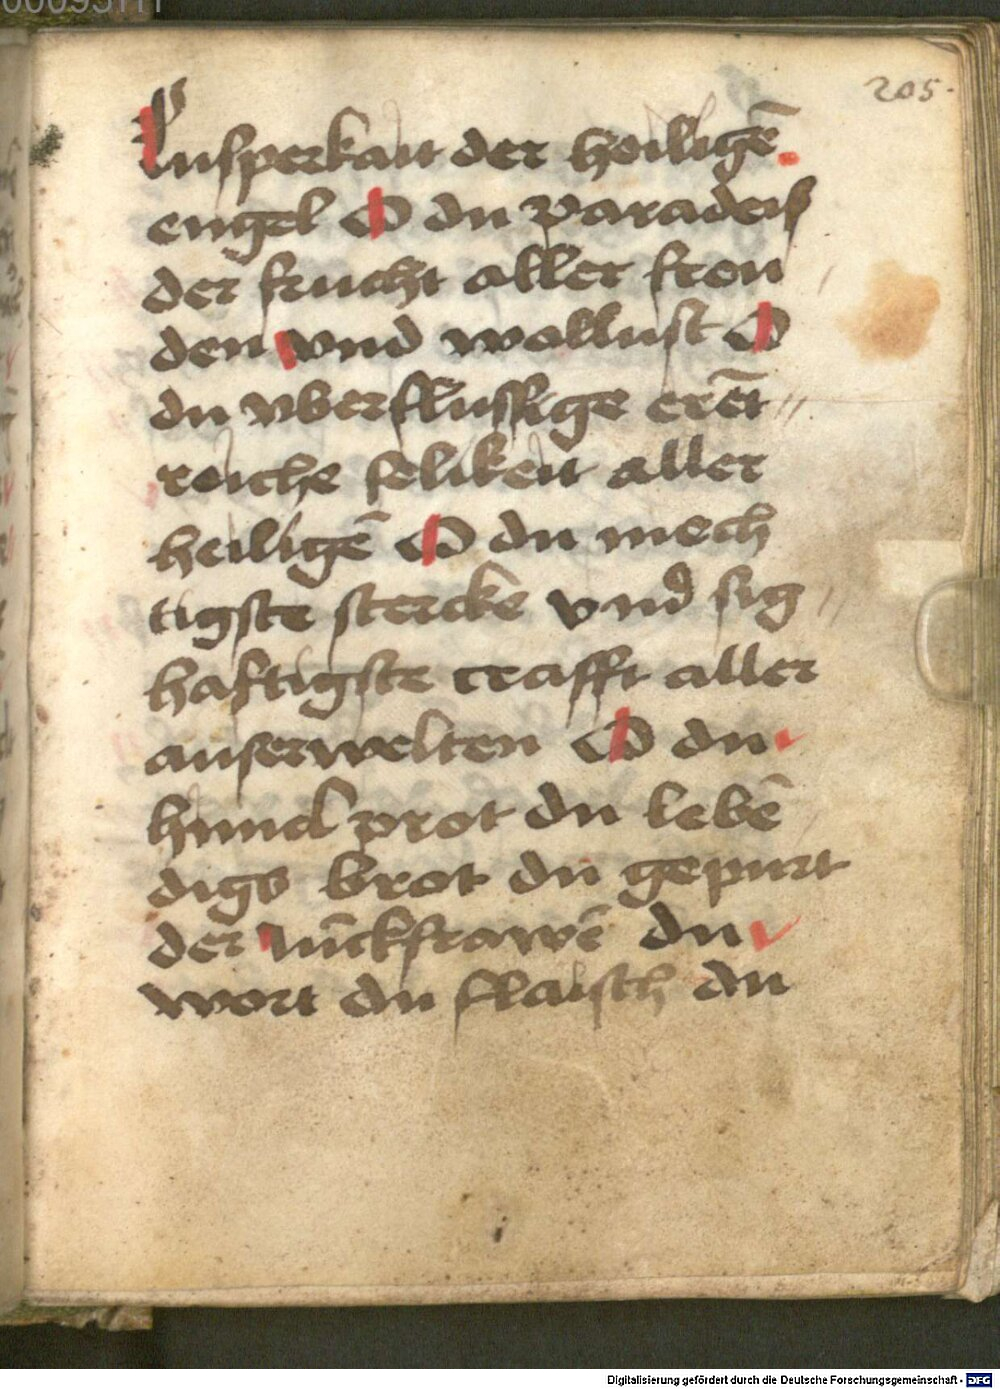 00095111
205.
lusperkait der heiligē
engel O du paradeiß
der frucht aller freu
den vnd wollust O
du vberflussige erēt
reiche selikeit aller
heiligē O du mech
tigste stercke vnd sig
haftigste crafft aller
auserwelten O du
himel prot du lebē
digs brot du gepurt
der iūckfrawē du
wort du flaisch du
Digitalisierung gefördert durch die Deutsche Forschungsgemeinschaft - DFG